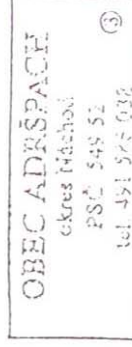 OBEC ADRŠPACH
okres Náchod
PSČ 549 52
tel. 491 586 030
③